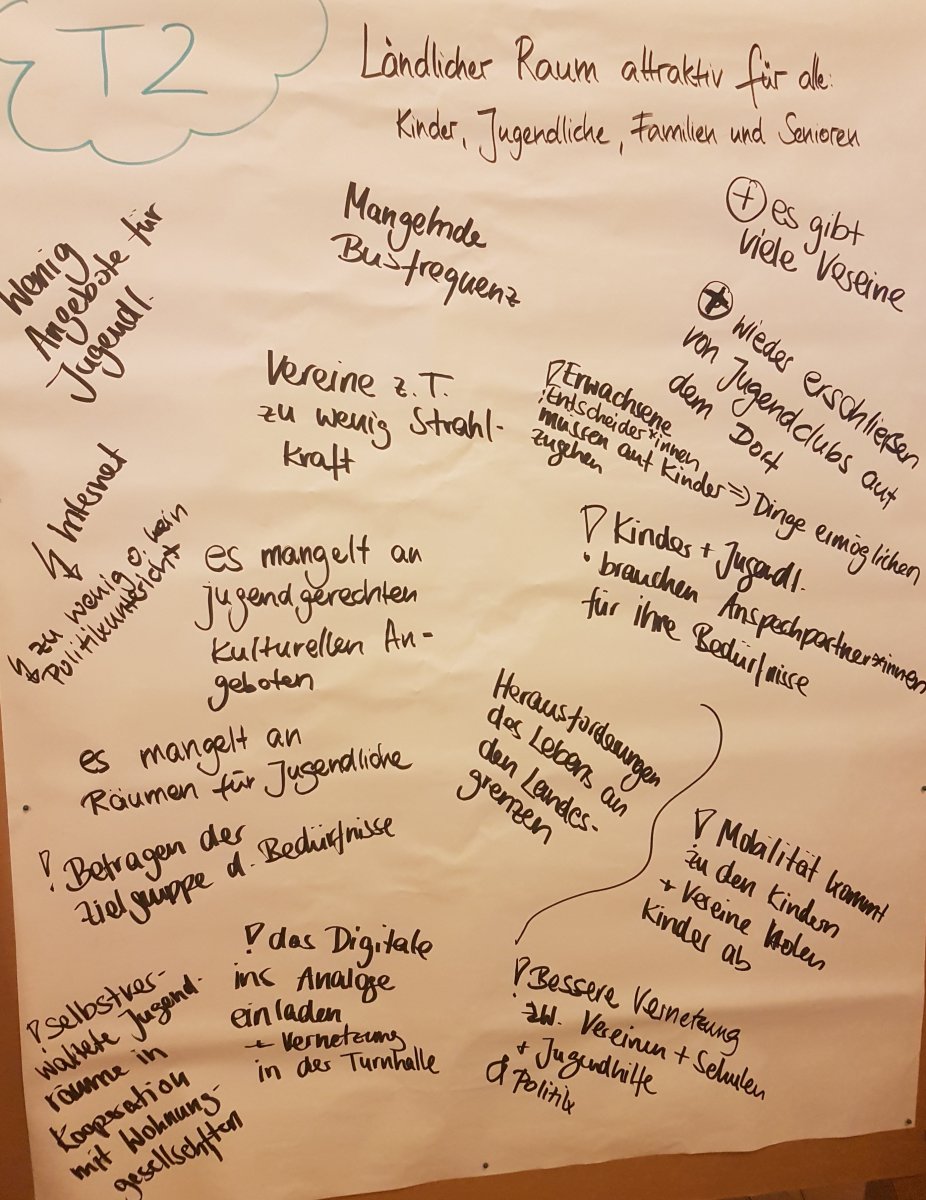 T2
Ländlicher Raum attraktiv für alle:
Kinder, Jugendliche, Familien und Senioren
Wenig
Angebote für
Jugendl.
Mangelnde
Busfrequenz
+ es gibt
viele Vereine
+ wieder erschließen
von Jugendclubs auf
dem Dorf
Vereine z.T.
zu wenig Strahl-
kraft
! Erwachsene
Entscheider*innen
müssen auf Kinder => Dinge ermöglichen
zugehen
Internet
zu wenig o. kein
Politikunterricht
es mangelt an
jugendgerechten
kulturellen An-
geboten
! Kinder + Jugendl.
brauchen Anspechpartner*innen
für ihre Bedürfnisse
es mangelt an
Räumen für Jugendliche
Herausforderungen
des Lebens an
den Landes-
grenzen
! Befragen der
Zielgruppe d. Bedürfnisse
! Mobilität kommt
zu den Kindern
+ Vereine holen
Kinder ab
! Selbstver-
waltete Jugend-
räume in
Kooperation
mit Wohnung-
gesellschften
! das Digitale
ins Analoge
einladen
+ Vernetzung
in der Turnhalle
! Bessere Vernetzung
zw. Vereinen + Schulen
+ Jugendhilfe
& Politik